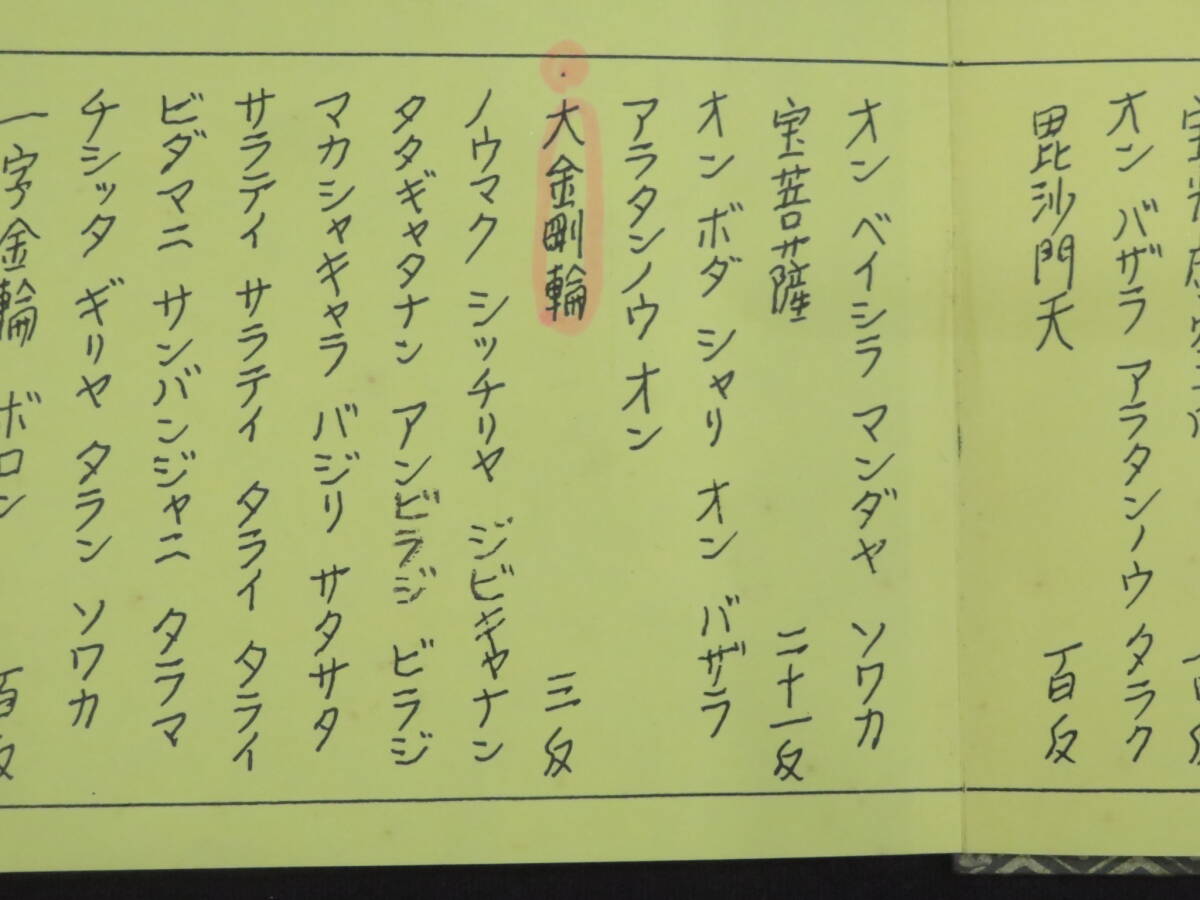 オン バザラ アラタンノウ タラク
毘沙門天 百反
オン ベイシラ マンダヤ ソワカ
宝菩薩 二十一反
オン ボダ シャリ オン バザラ
アラタンノウ オン
大金剛輪 三反
ノウマク シッチリヤ ジビキャナン
タタギャタナン アンビラジ ビラジ
マカシャキャラ バジリ サタサタ
サラテイ サラテイ タライ タライ
ビダマニ サンバンジャニ タラマ
チシッタ ギリヤ タラン ソワカ
一字金輪 ボロン 百反